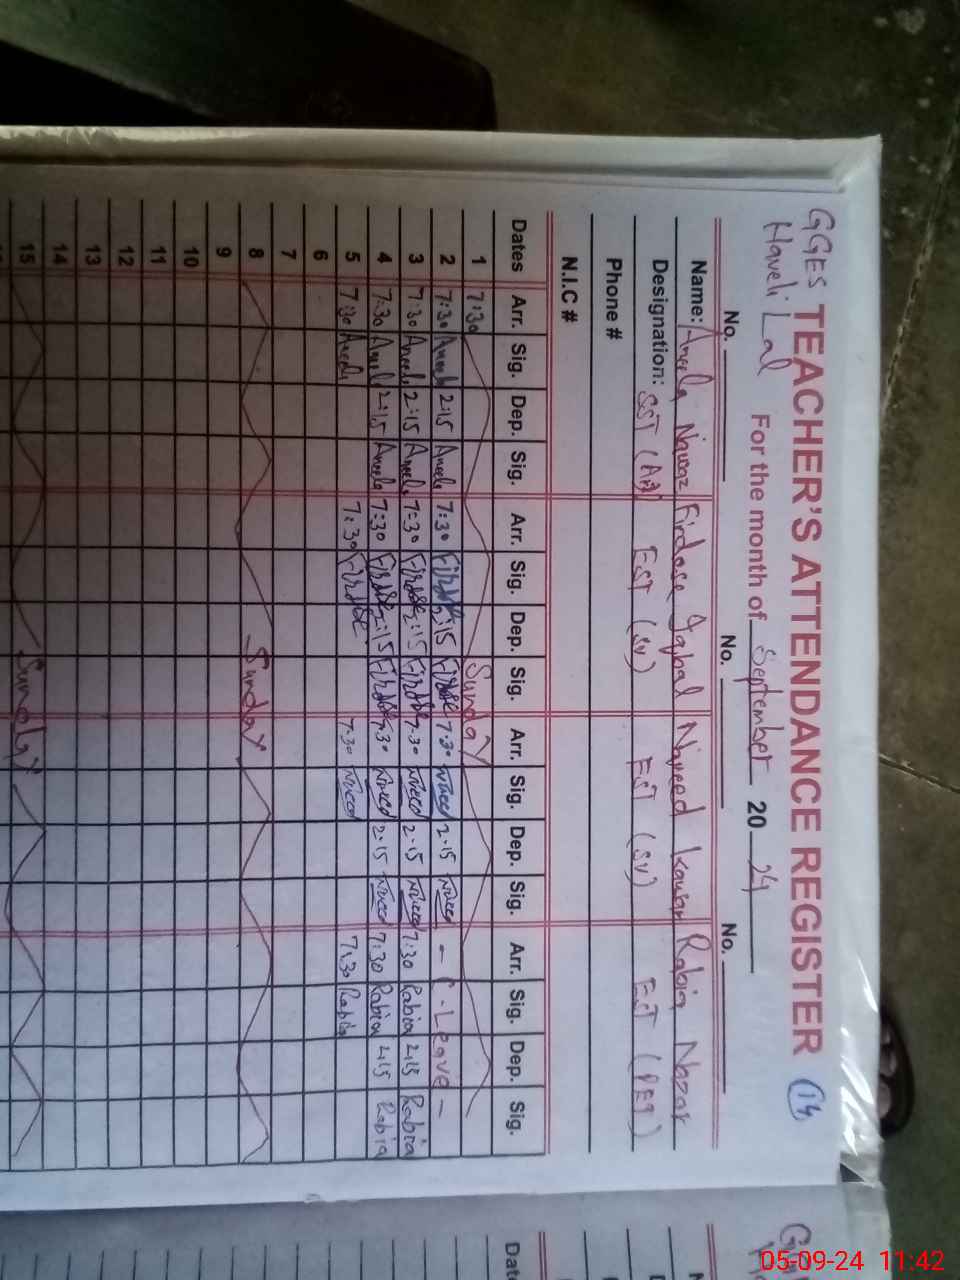 GGES TEACHER'S ATTENDANCE REGISTER 14
Haveli Lal For the month of September 20 24
No. No. No.
Name: Aneela Nawaz Firdose Iqbal Naveed Kousar Rabia Nazar
Designation: SST (Arts) EST (SV) EST (SV) EST (PET)
Phone #
N.I.C #
Dates Arr. Sig. Dep. Sig. Arr. Sig. Dep. Sig. Arr. Sig. Dep. Sig. Arr. Sig. Dep. Sig.
1 7:30 Sunday
2 7:30 Aneela 2:15 Aneela 7:30 Firdose 2:15 Firdose 7:30 Naveed 2:15 Naveed - C - Leave -
3 7:30 Aneela 2:15 Aneela 7:30 Firdose 2:15 Firdose 7:30 Naveed 2:15 Naveed 7:30 Rabia 2:15 Rabia
4 7:30 Aneela 2:15 Aneela 7:30 Firdose 2:15 Firdose 7:30 Naveed 2:15 Naveed 7:30 Rabia 2:15 Rabia
5 7:30 Aneela 7:30 Firdose 7:30 Naveed 7:30 Rabia
6
7
8 Sunday
9
10
11
12
13
14
15 Sunday
05-09-24 11:42